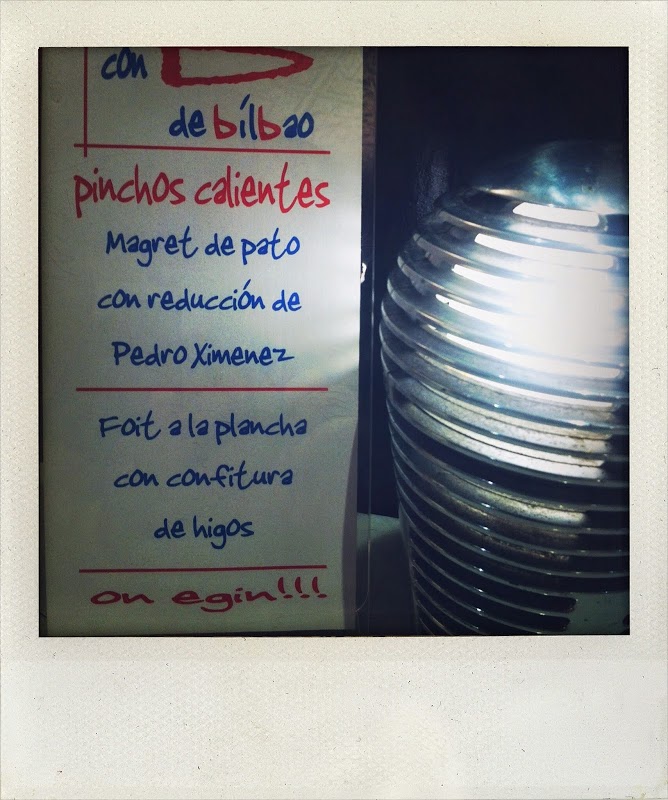 con
de bilbao
pinchos calientes
Magret de pato
con reducción de
Pedro Ximenez
Foit a la plancha
con confitura
de higos
on egin!!!